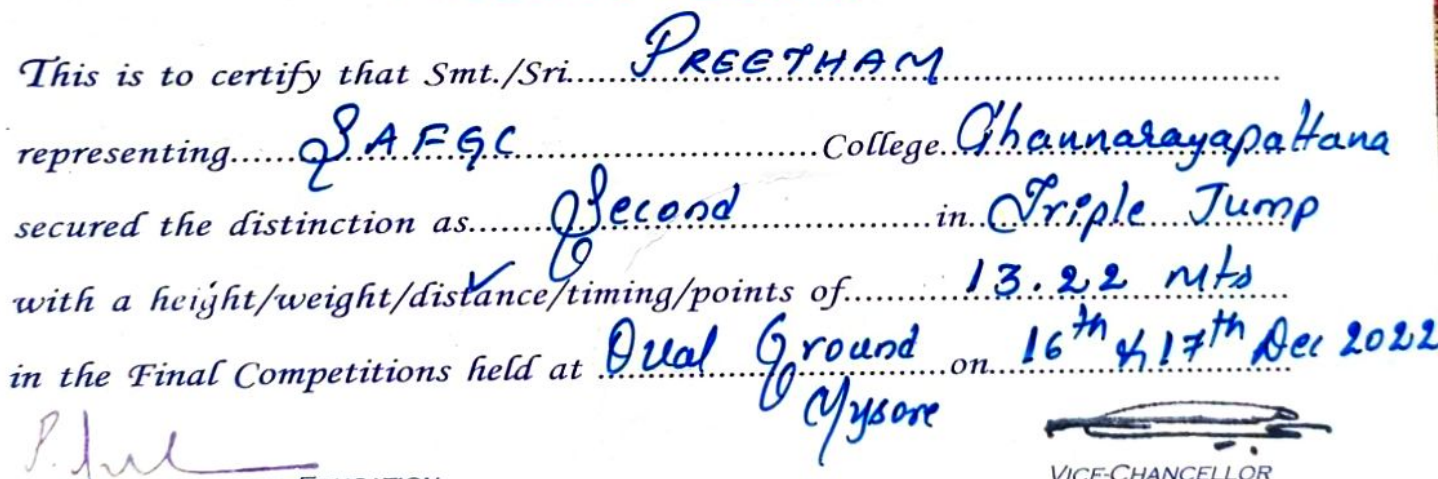 This is to certify that Smt./Sri......PREETHAM..............................
representing......SAFGC..............................College.Channarayapattana
secured the distinction as........Second....................in.Triple Jump
with a height/weight/distance/timing/points of...........13.22 mts
in the Final Competitions held at Oval Ground on 16th & 17th Dec 2022
Mysore
EDUCATION VICE-CHANCELLOR